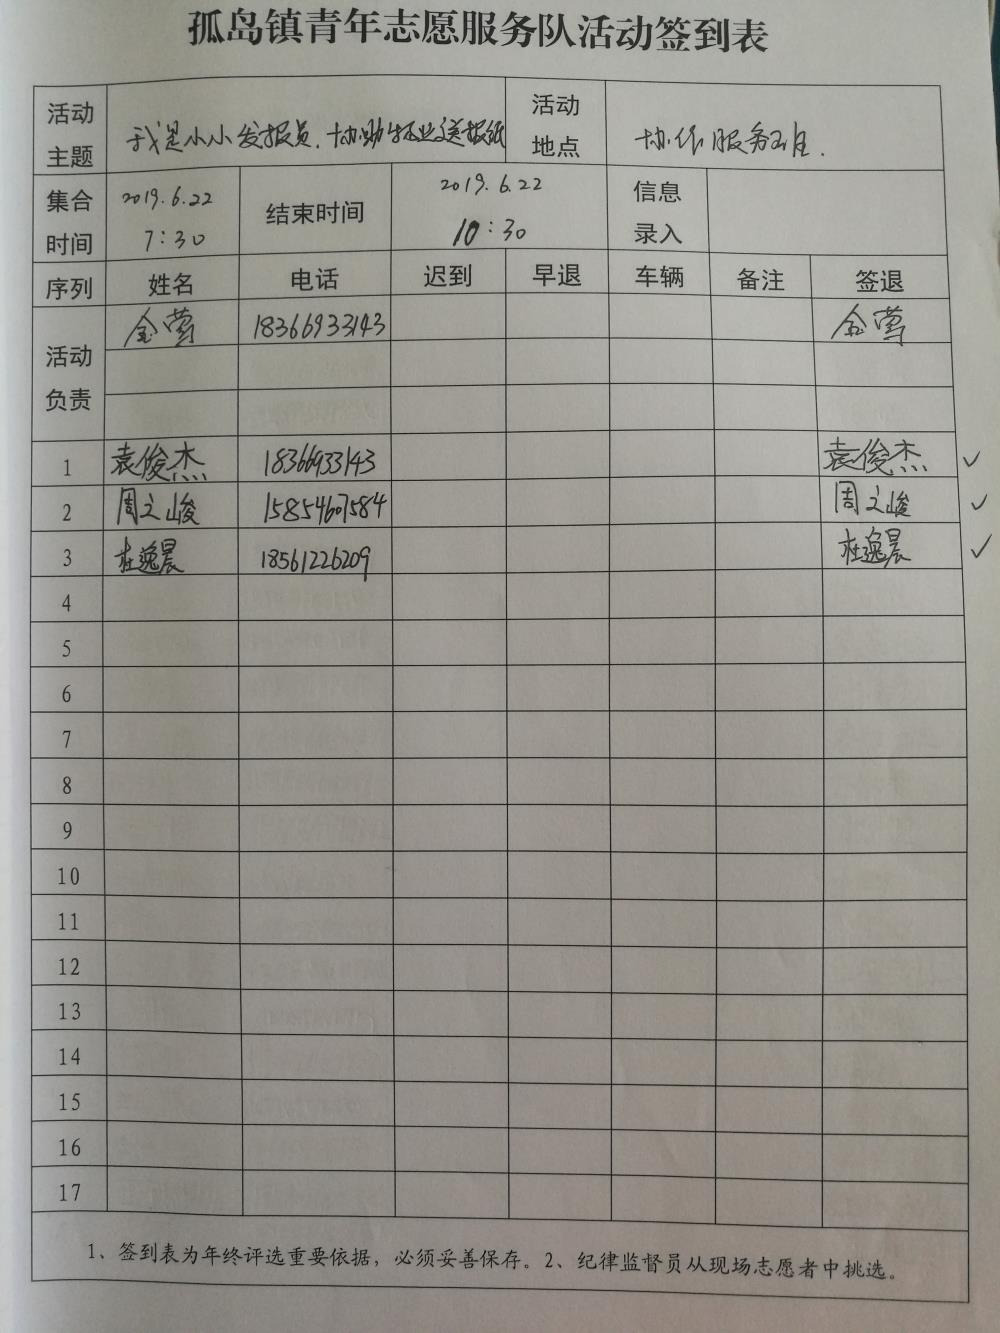 孤岛镇青年志愿服务队活动签到表
活动主题 我是小小发报员.协助物业送报纸 活动地点 协作服务班.
集合时间 2019.6.22 7:30 结束时间 2019.6.22 10:30 信息录入
序列 姓名 电话 迟到 早退 车辆 备注 签退
活动负责 金莺 18366933143 金莺
1 袁俊杰 18366933143 袁俊杰 ✓
2 周之峻 15854607584 周之峻 ✓
3 杜逸晨 18561226209 杜逸晨 ✓
4
5
6
7
8
9
10
11
12
13
14
15
16
17
1、签到表为年终评选重要依据，必须妥善保存。2、纪律监督员从现场志愿者中挑选。